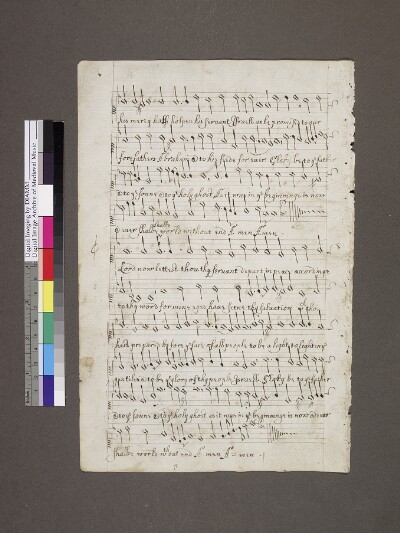 his mercy hath holpen his servant Israell as he promised to our
forefathers Abraham & to his seede for ever Glory be to ye father
& to ye sonne & to ye holy ghost As it was in ye beginninge is now
& ever shalbe world without end A men Amen
Lord now lettest thou thy servant depart in peace accordinge
to thy word for myn eyes have seene thy salvation wch thou
hast prepared before ye face of all people to be a light to lighten ye
gentiles & to be ye glory of thy people Israell Glory be to ye father
& to ye sonne & to ye holy ghost as it was in ye beginninge is now & ever
shalbe world wthout end A men A men
Digital Imaging by DIAMM
Digital Image Archive of Medieval Music